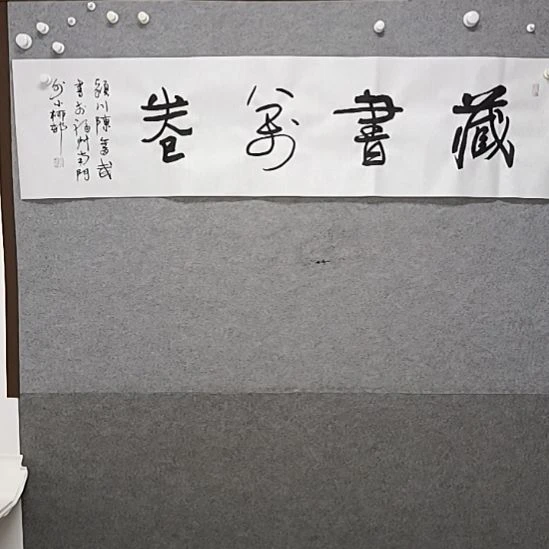 藏書萬卷
潁川陳書武
書於福州南門
外小柳邨